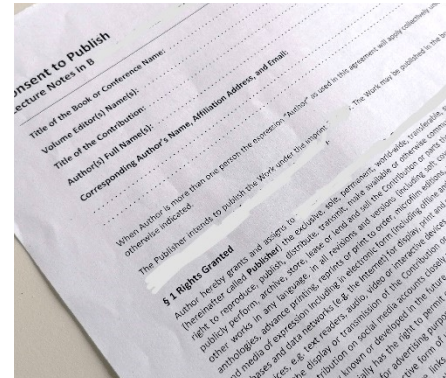 onsent to Publish
ecture Notes in B
Title of the Book or Conference Name:
Volume Editor(s) Name(s):
Title of the Contribution:
Author(s) Full Name(s):
Corresponding Author's Name, Affiliation Address, and Email:
When Author is more than one person the expression "Author" as used in this agreement will apply collectively un
otherwise indicated.
The Publisher intends to publish the Work under the imprint . The Work may be published in the b
§ 1 Rights Granted
Author hereby grants and assigns to
(hereinafter called Publisher) the exclusive, sole, permanent, world-wide, transferable,
right to reproduce, publish, distribute, transmit, make available or otherwise commu
publicly perform, archive, store, lease or lend and sell the Contribution or parts th
other works in any language, in all revisions and versions (including soft cov
anthologies, advance printing, reprints or print to order, microfilm editions,
nd media of expression including in electronic form (including offline an
bases and data networks (e.g. the Internet) for display, print and
ices, e.g. text readers, audio, video or interactive devices
the display or transmission of the Contribution
tribution on social media accounts closely
known or developed in the future
ally has the right to perm
for advertising purpos
ctive form of
links